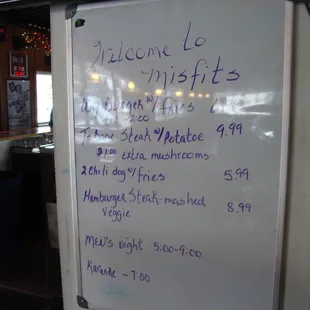 Welcome to
misfits
Burger w/ fries
2:00
Steak w/ Potatoe 9.99
$1.00 extra mushrooms
2 Chili dog w/ fries 5.99
Hamburger Steak-mashed
Veggie 8.99
MEN'S Night 5:00-9:00
Karaoke - 7:00